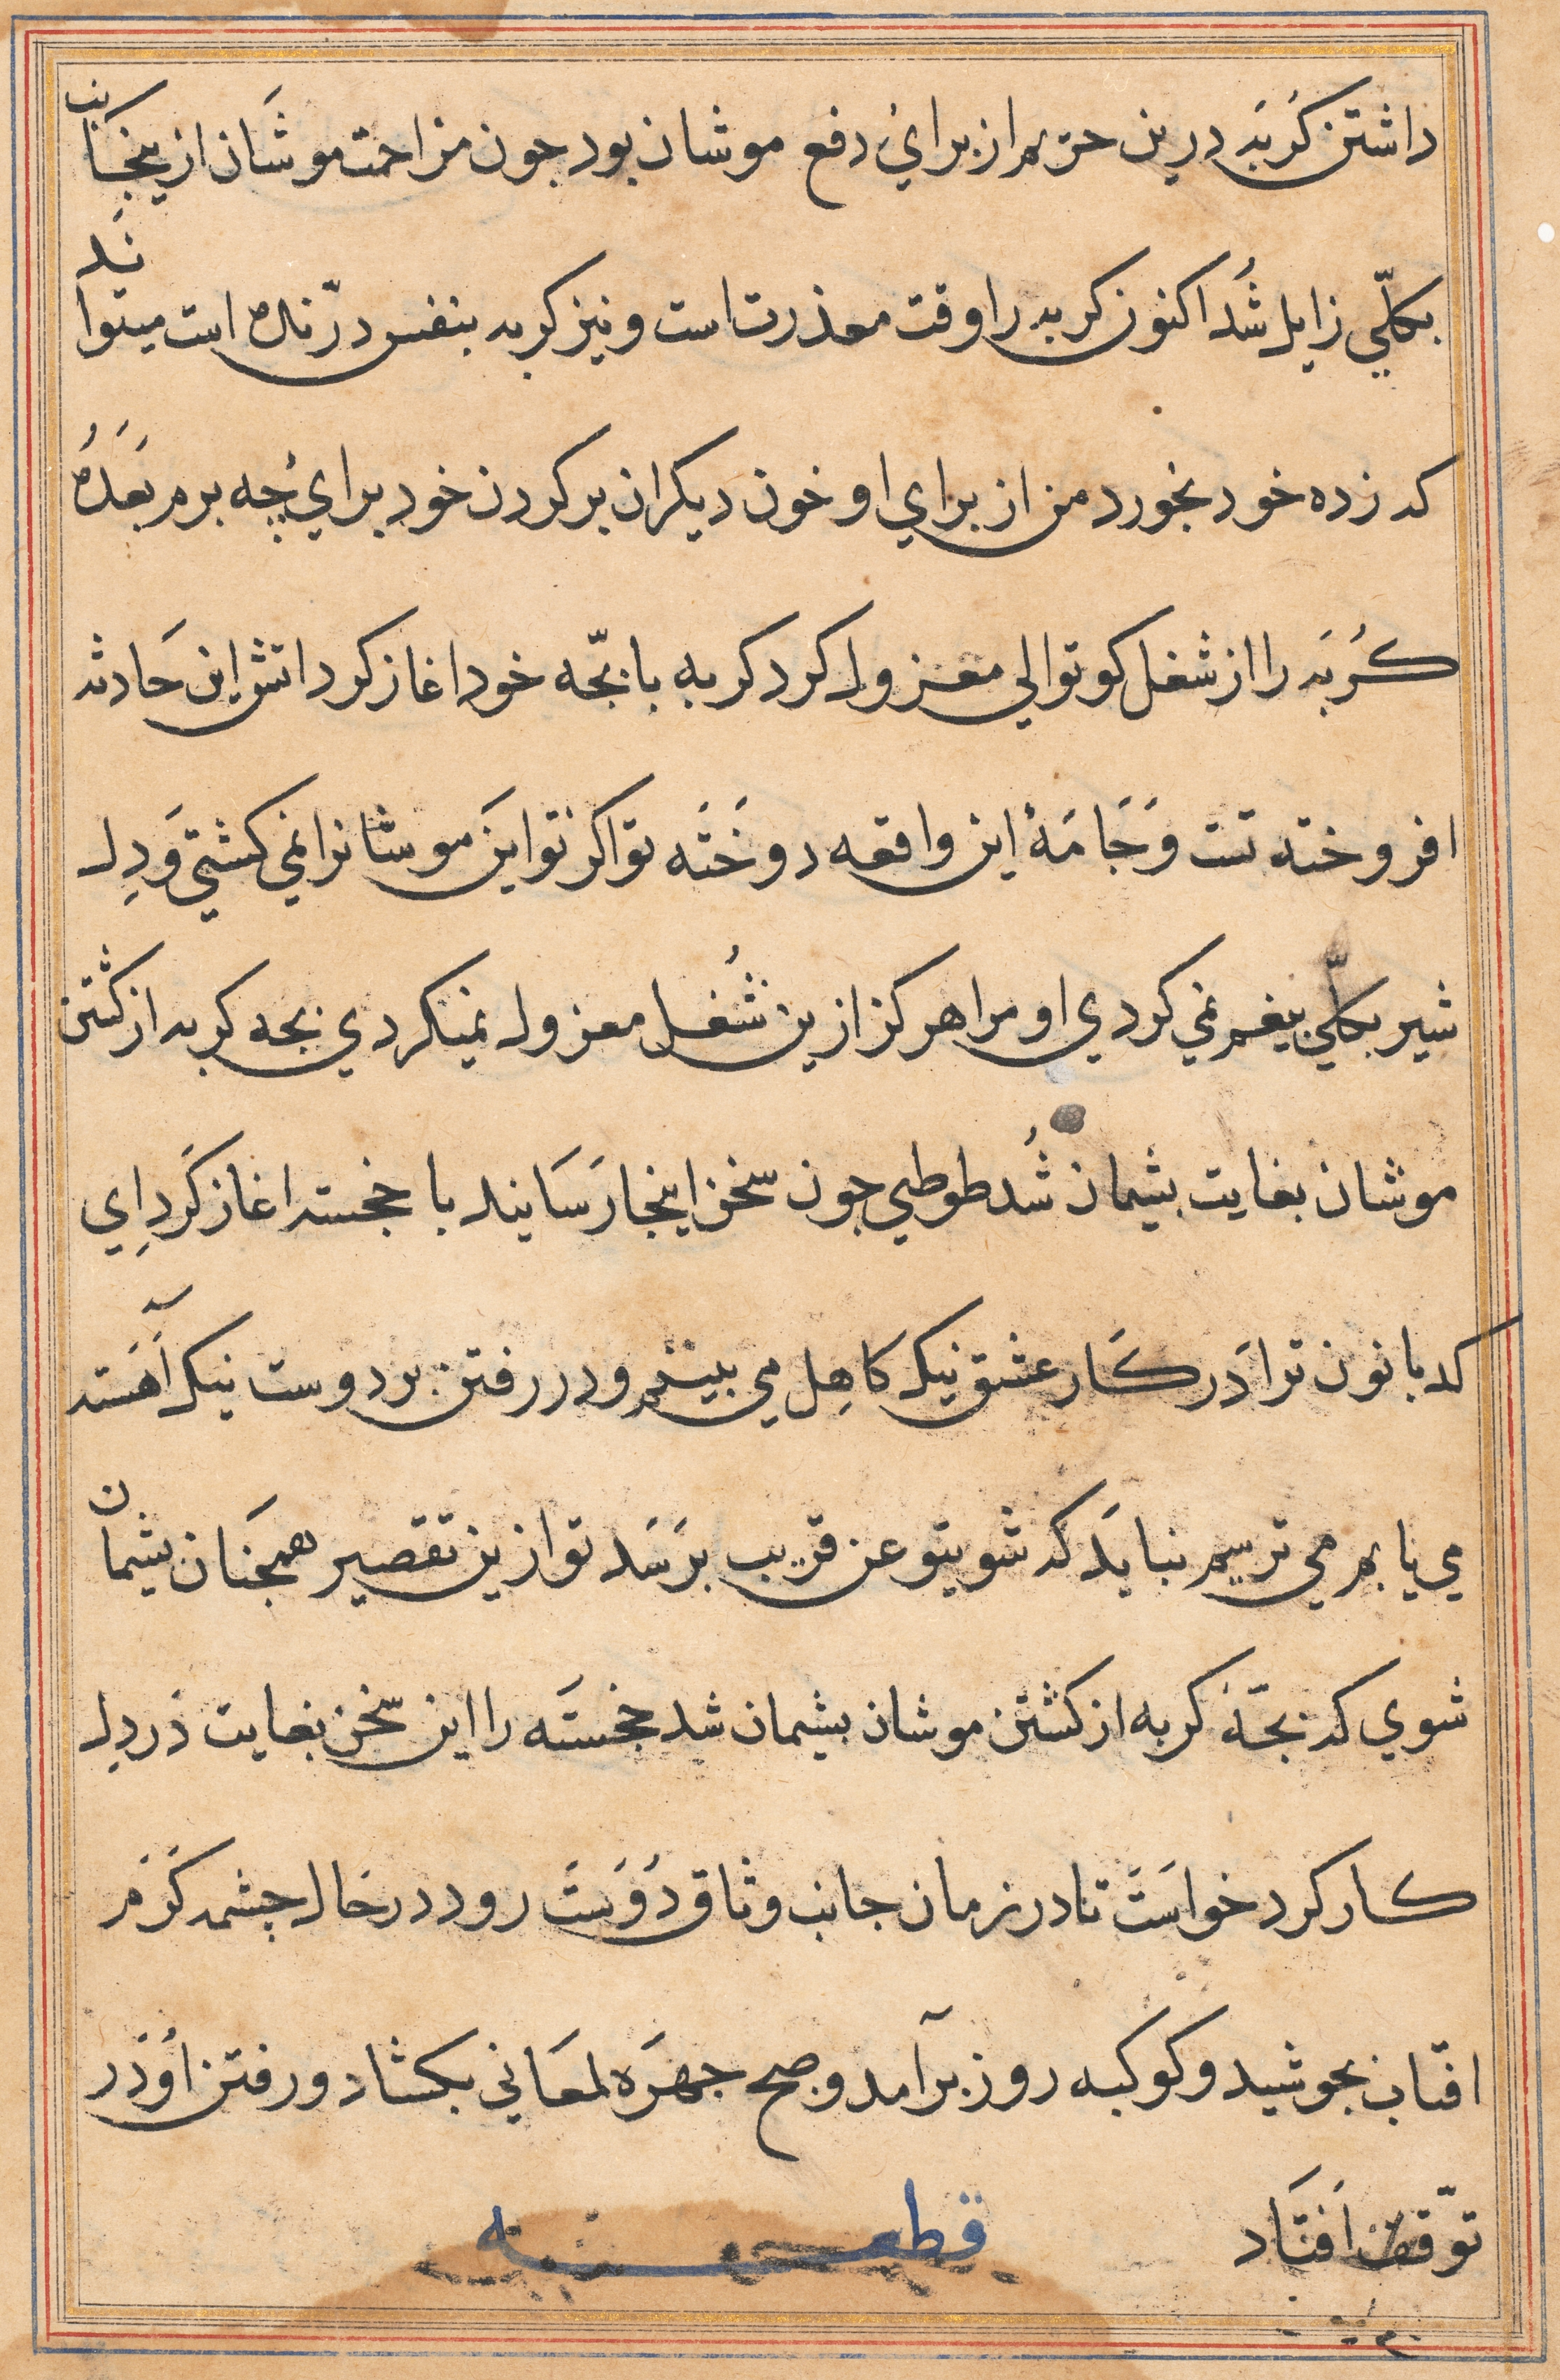 داشتن کُربَه درین حریم از برایُ دفع موشان بود جون مزاحمت موشَان ازینجَانب
بکلّي زایل شُد اکنون کربه را وقت معذرت است و نیز کربه بنفس درّنده است میتواند
که زده خود بخورد من از براي او خون دیکران بر کردن خود برايُ چه برم بَعَدهُ
کُربَه را از شغل کوتوالي معزول کرد کربه با بچّه خود اغاز کرد اتش این حَادثه
افروخته تست وَجَامَهٔ این واقعه دوخَتَه تو اکر تو این موشانرا نمي کشتيَ وَدِل
شیر بکلّي بیغم نمي کردي او مرا هرکز ازین شُغل معزول نمیکردي بجه کربه از کشتن
موشان بغایت بشیمان شُد طوطي جون سخن اینجا رَسَانید با خجسته اغاز کَرد اِي
کدبانون ترا دَر کَار عشق نیک کاهِل مي بینم و در رفتن بر دوست نیک آهَسته
مي یابم مي ترسم نبایَد که شویتو عن قریب برَسَد تو ازین تقصیر همجَنان بشیمان
شوي که بجّهٔ کربه از کشتن موشان بشیمان شد خجستَه را این سخن بغایت دَر دِل
کار کرد خواسَت تا در زمان جانب وثاق دُوَسَت رود در حَال چشمه کَرَم
افتاب بجوشید و کوکبه روز برآمد و صبح جهرَه لمعَاني بکشاد و رفتن اُو دَر
توّقف اَفتَاد قطعه